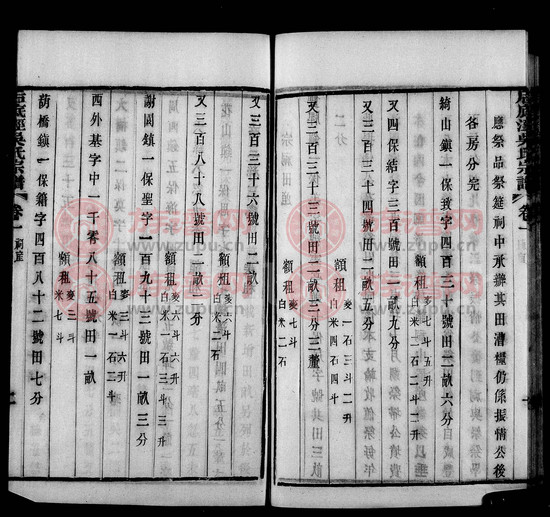 應祭品祭筵祠中承辦其田漕糧仍係振情公後
各房分完
綺山鎮一保致字四百三十號田二畝六分
額租
麥七斗五升
白米二石二斗
又四保結字三百號田一畝九分
又三百三十四號田一畝五分
額租
麥一石三斗二升
白米四石四斗
又三百三十七號田二畝二分三釐
額租
麥七斗
白米二石
又三百三十六號田二畝
額租
麥六斗
白米二石
又三百八十八號田二畝二分
額租
麥六斗六升
白米二石
謝園鎮一保聖字一百九十三號田一畝三分
額租
麥三斗三升
白米一石三斗
西外基字中一千零八十五號田一畝
額租
麥三斗
米七斗
葫橋鎮一保籍字四百八十二號田七分
吳氏宗譜
卷一
祠產
www.zupu.cn